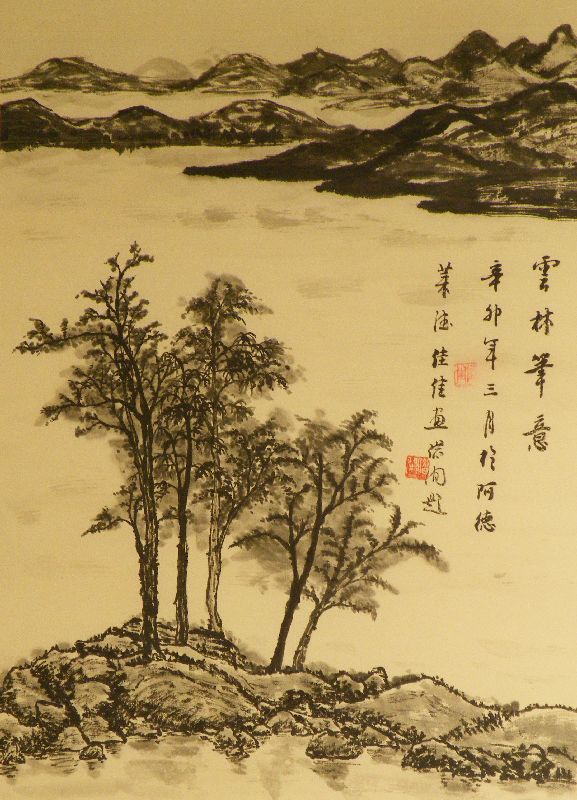 雲林筆意
辛卯年三月於阿德
萊德佳佳画洪恂題